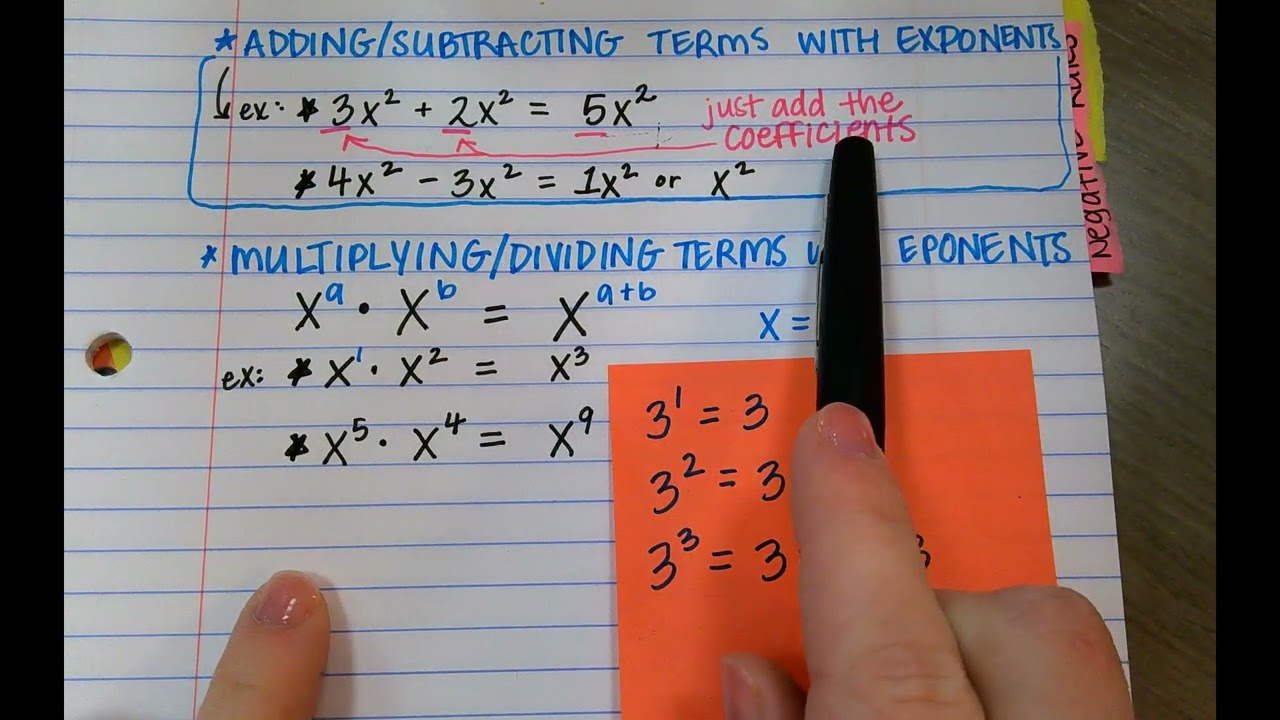 * ADDING/SUBTRACTING TERMS WITH EXPONENTS
ex: * 3x² + 2x² = 5x² just add the
coefficients
* 4x² - 3x² = 1x² or x²
* MULTIPLYING/DIVIDING TERMS EPONENTS
xᵃ · xᵇ = xᵃ⁺ᵇ
x =
ex: * x¹ · x² = x³
* x⁵ · x⁴ = x⁹
3¹ = 3
3² = 3
3³ = 3 3
Negative Rules